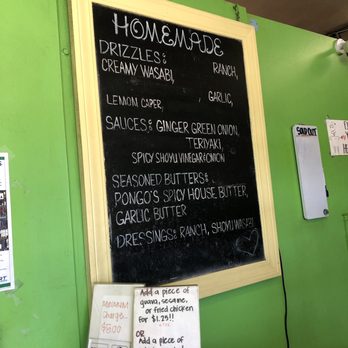 HOMEMADE
DRIZZLES:
CREAMY WASABI, RANCH,
LEMON CAPER, GARLIC,
SAUCES: GINGER GREEN ONION,
TERIYAKI,
SPICY SHOYU VINEGAR & ONION
SEASONED BUTTERS:
PONGO'S SPICY HOUSE BUTTER,
GARLIC BUTTER
DRESSINGS: RANCH, SHOYU WASABI
SOLD OUT
Add a piece of
guava, sesame,
or fried chicken
for $1.25!!
OR
Add a piece of
Charge
$5.00